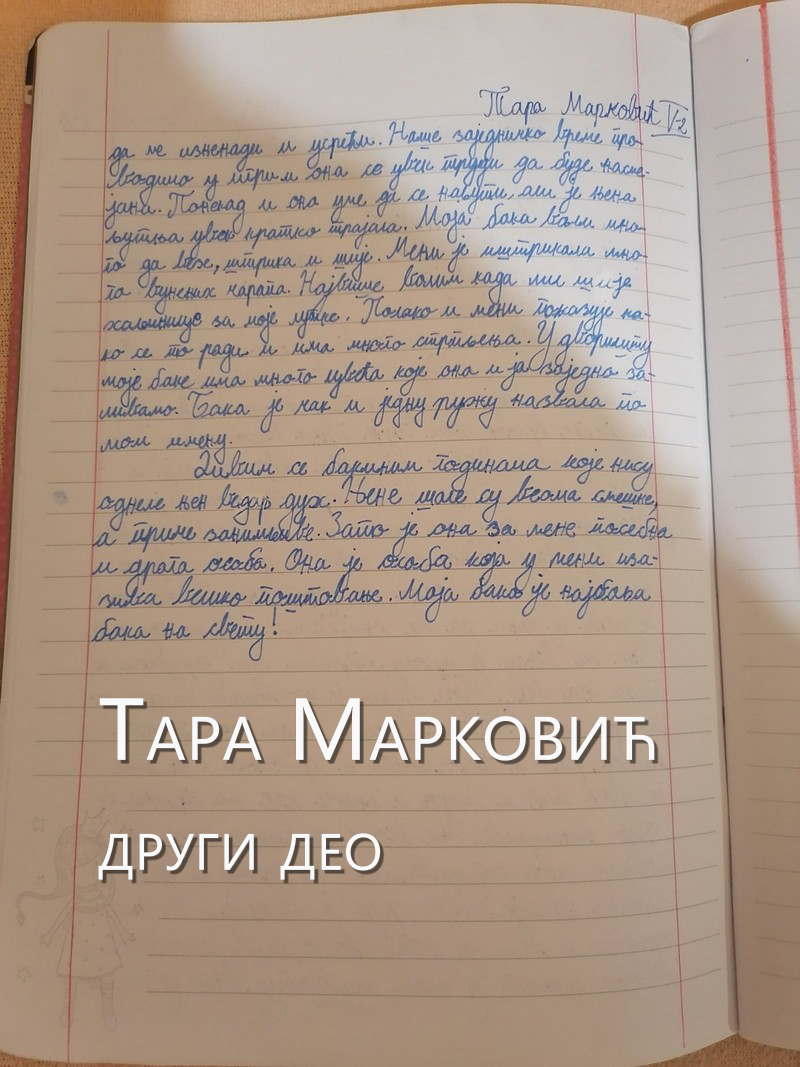 Тара Марковић V-2
да ме изненади и усрећи. Наше заједничко време про-
водимо у игри и она се увек труди да буде насме-
јана. Понекад и она уме да се наљути, али је њена
љутња увек кратко трајала. Моја бака воли мно-
го да везе, штрика и шије. Мени је иштрикала мно-
го вунених чарапа. Највише волим када ми шије
хаљинице за моје лутке. Полако и мени показује ка-
ко се то ради и има много стрпљења. У дворишту
моје баке има много цвећа које она и ја заједно за-
ливамо. Бака је чак и једну ружу назвала по
мом имену.
Дивим се бакиним годинама које нису
однеле њен ведар дух. Њене шале су веома смешне,
а приче занимљиве. Зато је она за мене посебна
и драга особа. Она је особа која у мени иза-
зива велико поштовање. Моја бака је најбоља
бака на свету!
Тара Марковић
други део